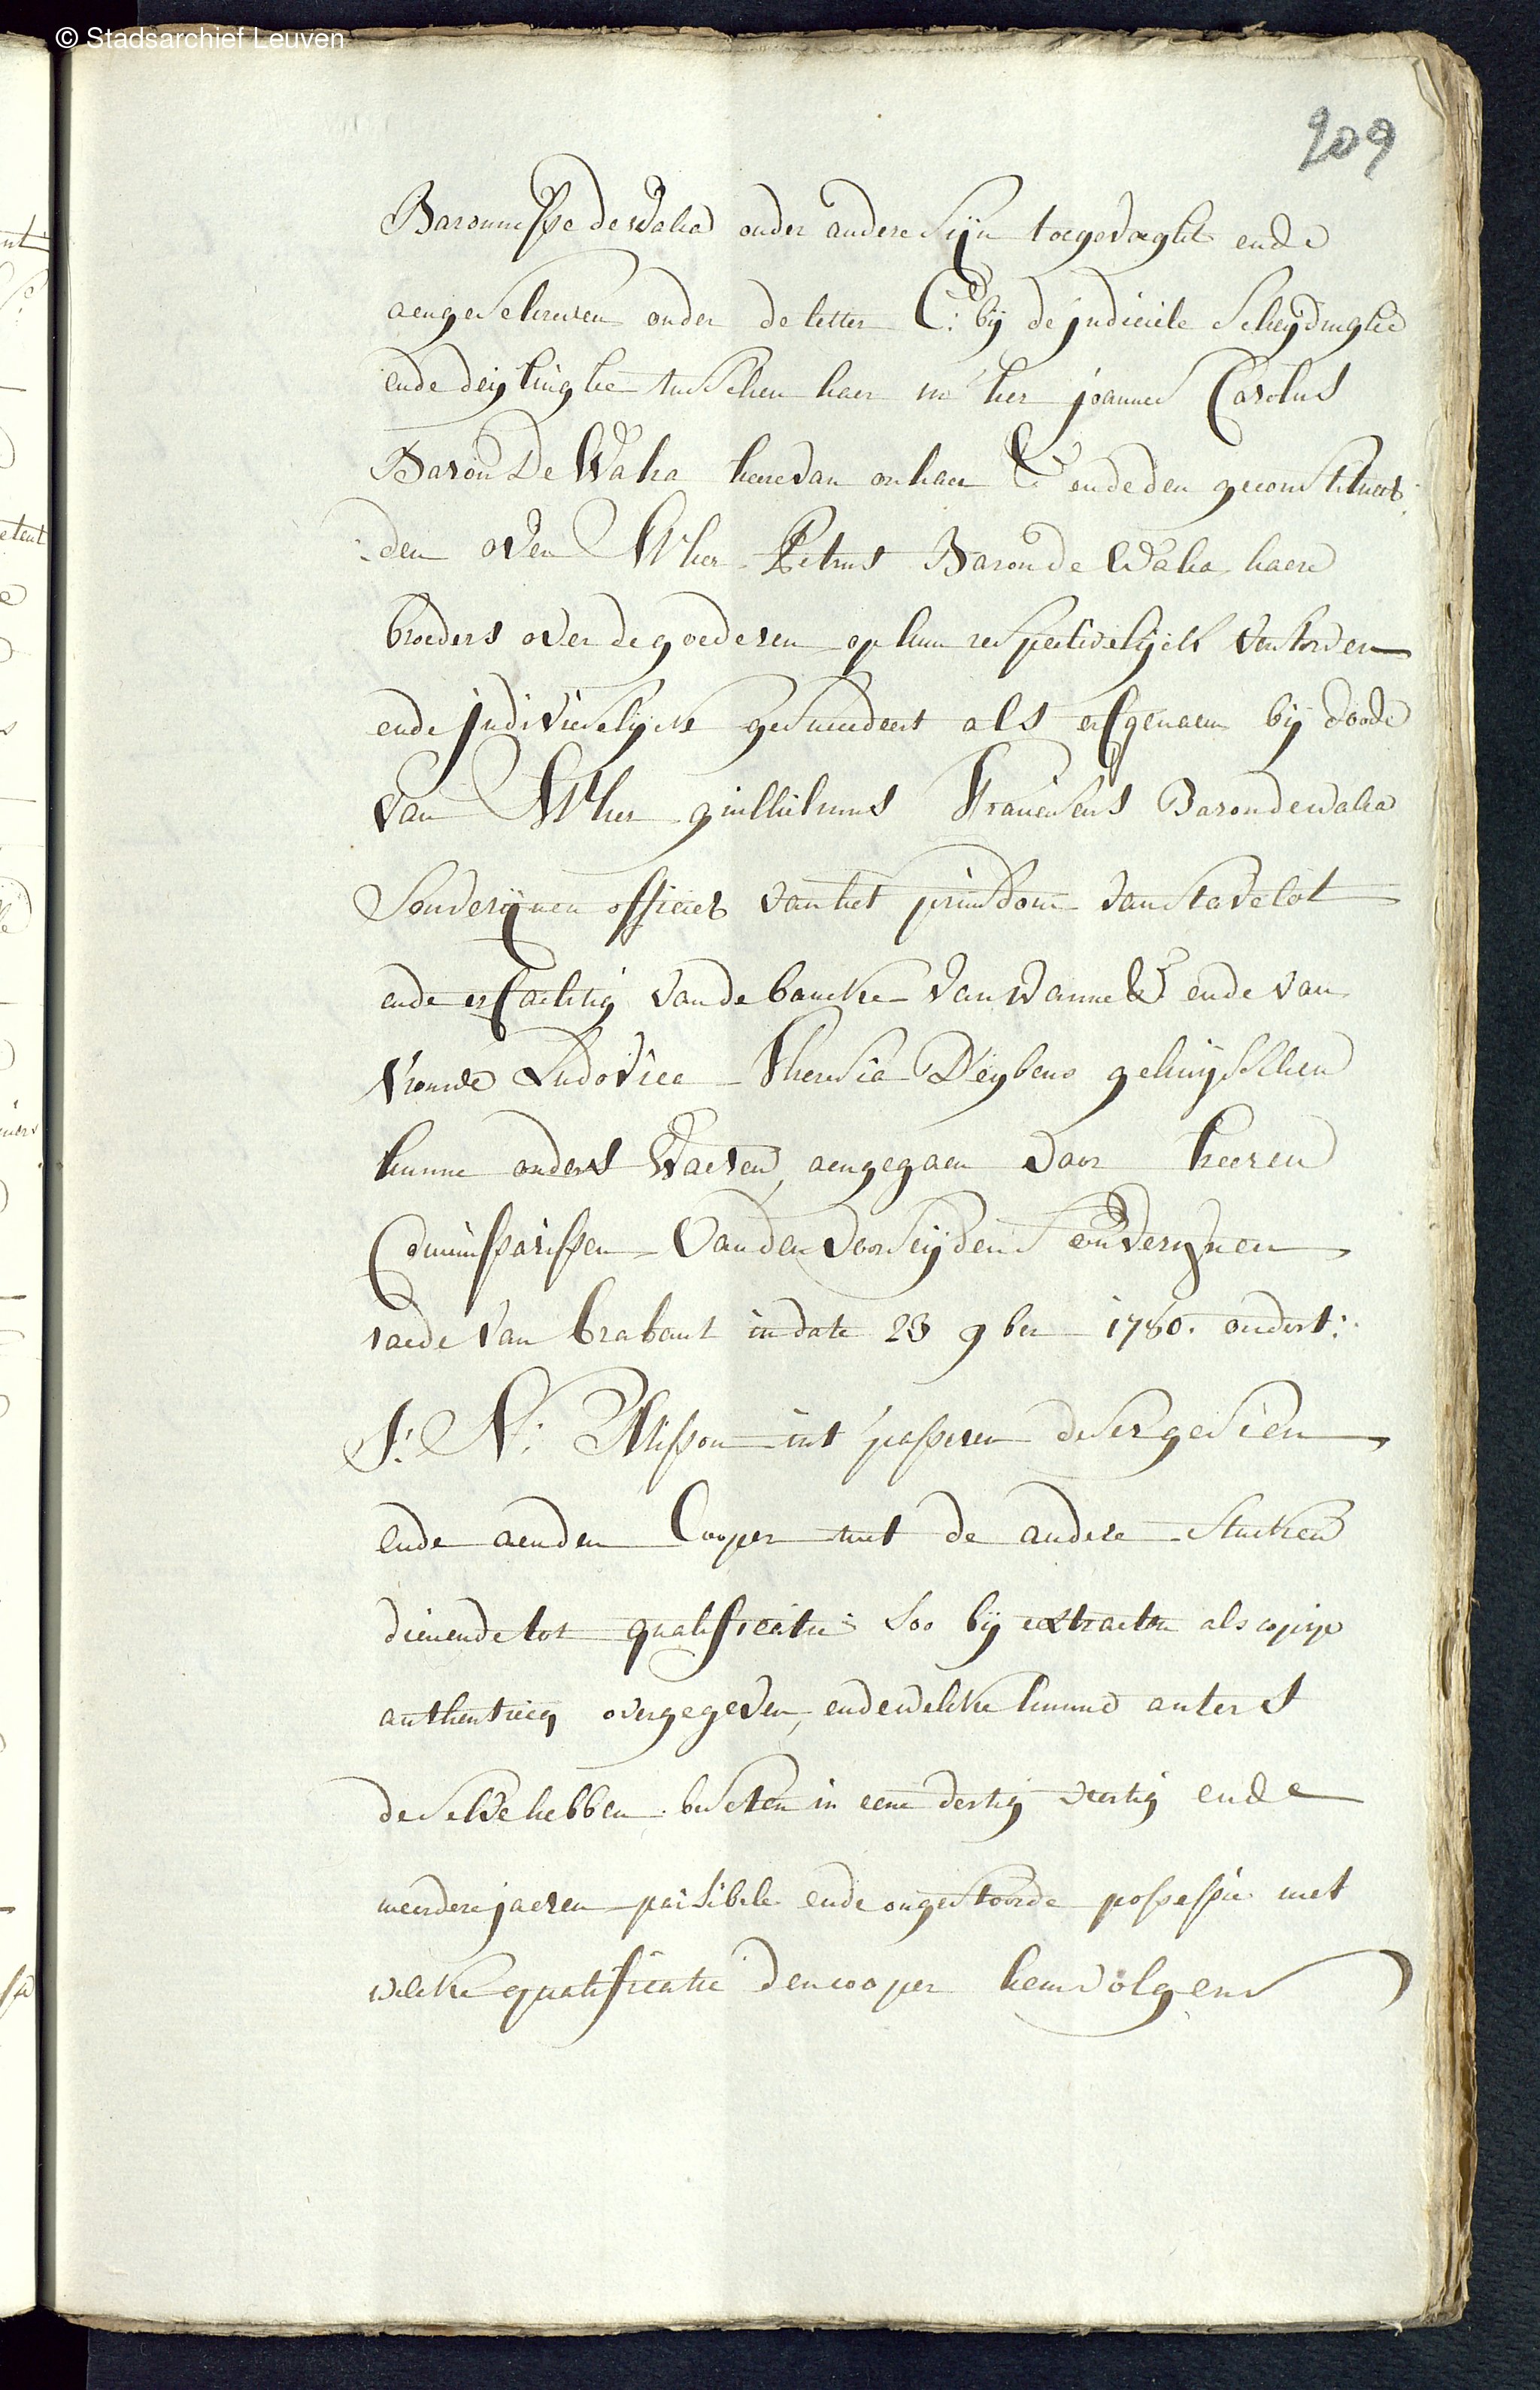 © Stadsarchief Leuven
209
Baronnesse de Waha onder andere sijn toegevoeght ende
aengeschreven onder de letter C: bij de judiciele scheydinghe
ende deijlinghe tusschen haer m'her joannes Carolus
Baron De Waha heere van onhaer &c ende den geconstitueer
:den over M'her Petrus Baron de Waha haere
broeders over de goederen op hun respectivelijck verstorven
ende judivieselijck gesuccedeert als erfgenaem bij doode
van M'her guillielmus Franciscus Baron de waha
Souverijnen officier van het prinsdom van stavelot
ende erfachtig van de bancke van Wanne &c ende van
vrouwe Ludovica Theresia D'eybens gehuysschen
hunne ouders Waeren, aengegaen voor heeren
Commissarissen van den voorseijden souverijnen
raede van brabant in date 23 9ber 1780. ondert:
S: N: Misson int passeren deser gesien
ende aenden Cooper met de andere stucken
dienende tot qualificatie soo bij extracten als copije
authenticq overgegeven, ende welcke hunne auters
deselve hebben beseten in eene dertig veertig ende
meerdere jaeren paisibele ende ongestoorde possessie met
welcke qualificatie den cooper hem volgens